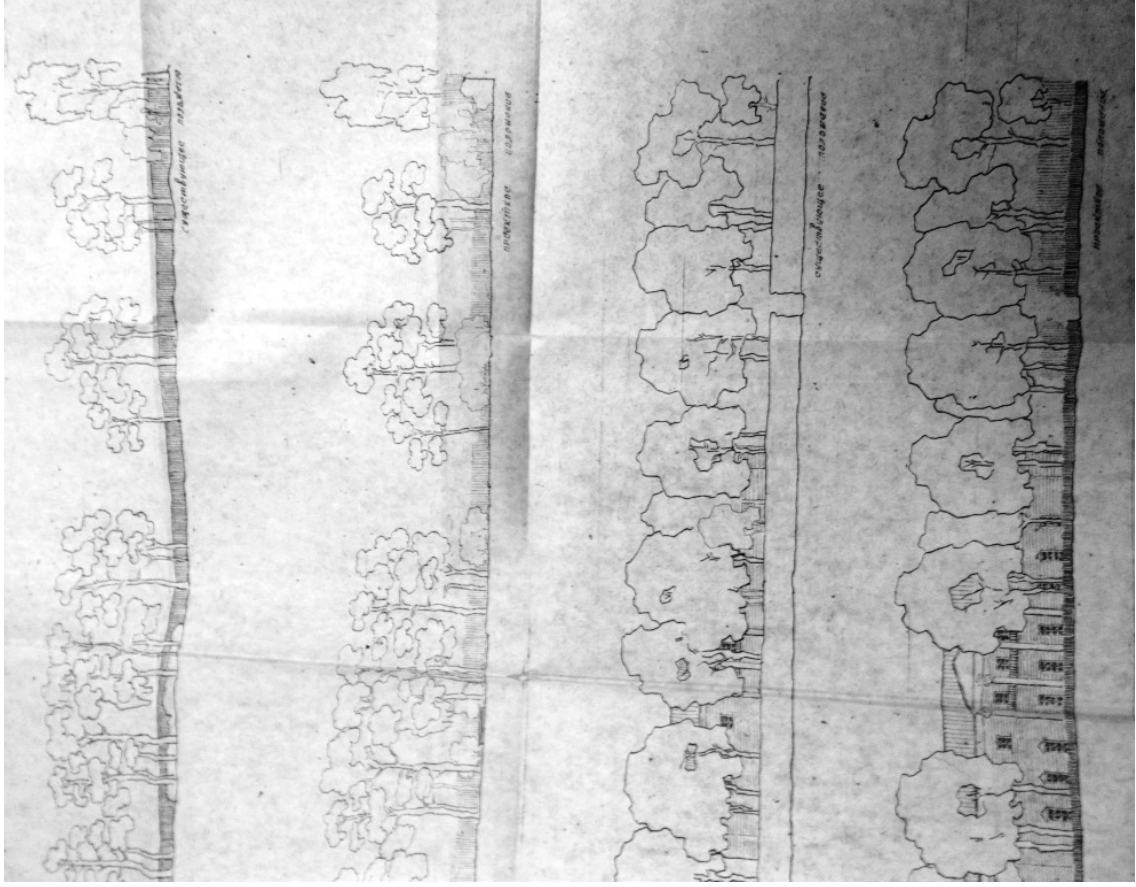 существующее положение
проектное положение
существующее положение
проектное положение